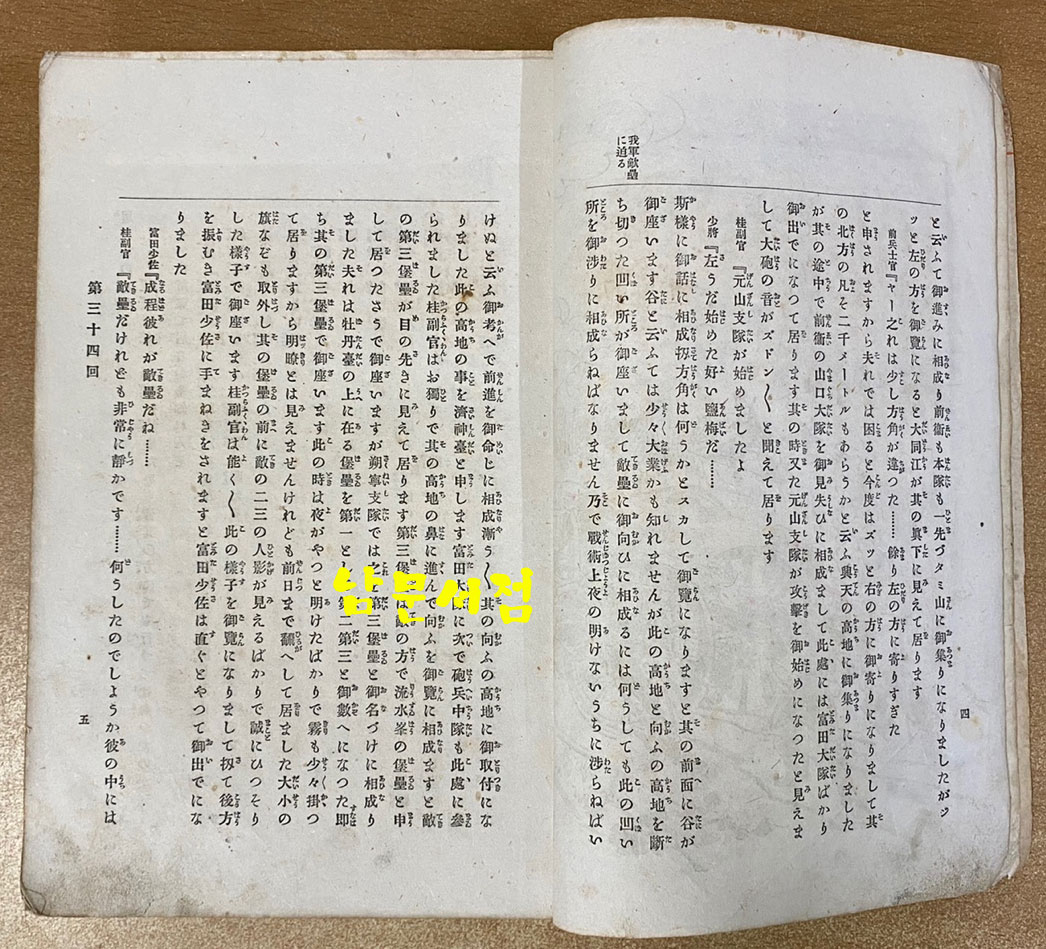 四
我軍敵壘
に迫る
と云ふて御進みに相成り前衞も本隊も一先づタミ山に御集りになりましたがジ
ッと左の方を御覽になると大同江が其の眞下に見えて居ります
前兵士官『ヤー之れは少し方角が違つた……餘り左の方に寄りすぎた
と申されますから夫れでは困ると今度はズッと右の方に御寄りになりまして其
の北方の凡そ二千メートルもあらうかと云ふ興天の高地に御集りになりました
が其の途中で前衞の山口大隊を御見失ひに相成まして此處には富田大隊ばかり
御出でになつて居ります其の時又た元山支隊が攻擊を御始めになつたと見えま
して大砲の音がズドン〱と聞えて居ります
桂副官『元山支隊が始めましたよ
少將『左うだ始めた好い鹽梅だ………
斯樣に御話に相成扨方角は何うかとスカして御覽になりますと其の前面に谷が
御座います谷と云ふては少々大業かも知れませんが此の高地と向ふの高地を斷
ち切つた凹い所が御座いまして敵壘に御向ひに相成るには何うしても此の凹い
所を御涉りに相成らねばなりません乃で戰術上夜の明けないうちに涉らねばい
けぬと云ふ御考へで前進を御命じに相成漸う〱其の向ふの高地に御取付にな
りました此の高地の事を濟神臺と申します富田大隊に次で砲兵中隊も此處に參
られました桂副官はお獨りで其の高地の鼻に進んで向ふを御覽に相成ますと敵
の第三堡壘が目の先きに見えて居ります第三堡壘は の方で流水峯の堡壘と申
して居つたさうで御座いますが朔寧支隊では之を第三堡壘と御名づけに相成り
ました夫れは牡丹臺の上に在る堡壘を第一とし 第二第三と御數へになつた卽
ち其の第三堡壘で御座います此の時は夜がやつと明けたばかりで霧も少々掛つ
て居りますから明瞭とは見えませんけれども前日まで飜へして居ました大小の
旗なぞも取外し其の堡壘の前に敵の二三の人影が見えるばかりで誠にひつそり
した樣子で御座います桂副官は能く〱此の樣子を御覽になりまして扨て後方
を振むき富田少佐に手まねきをされますと富田少佐は直ぐとやつて御出でにな
りました
富田少佐『成程彼れが敵壘だね………
桂副官『敵壘だけれども非常に靜かです……何うしたのでしようか彼の中には
第三十四回
五
남문서점